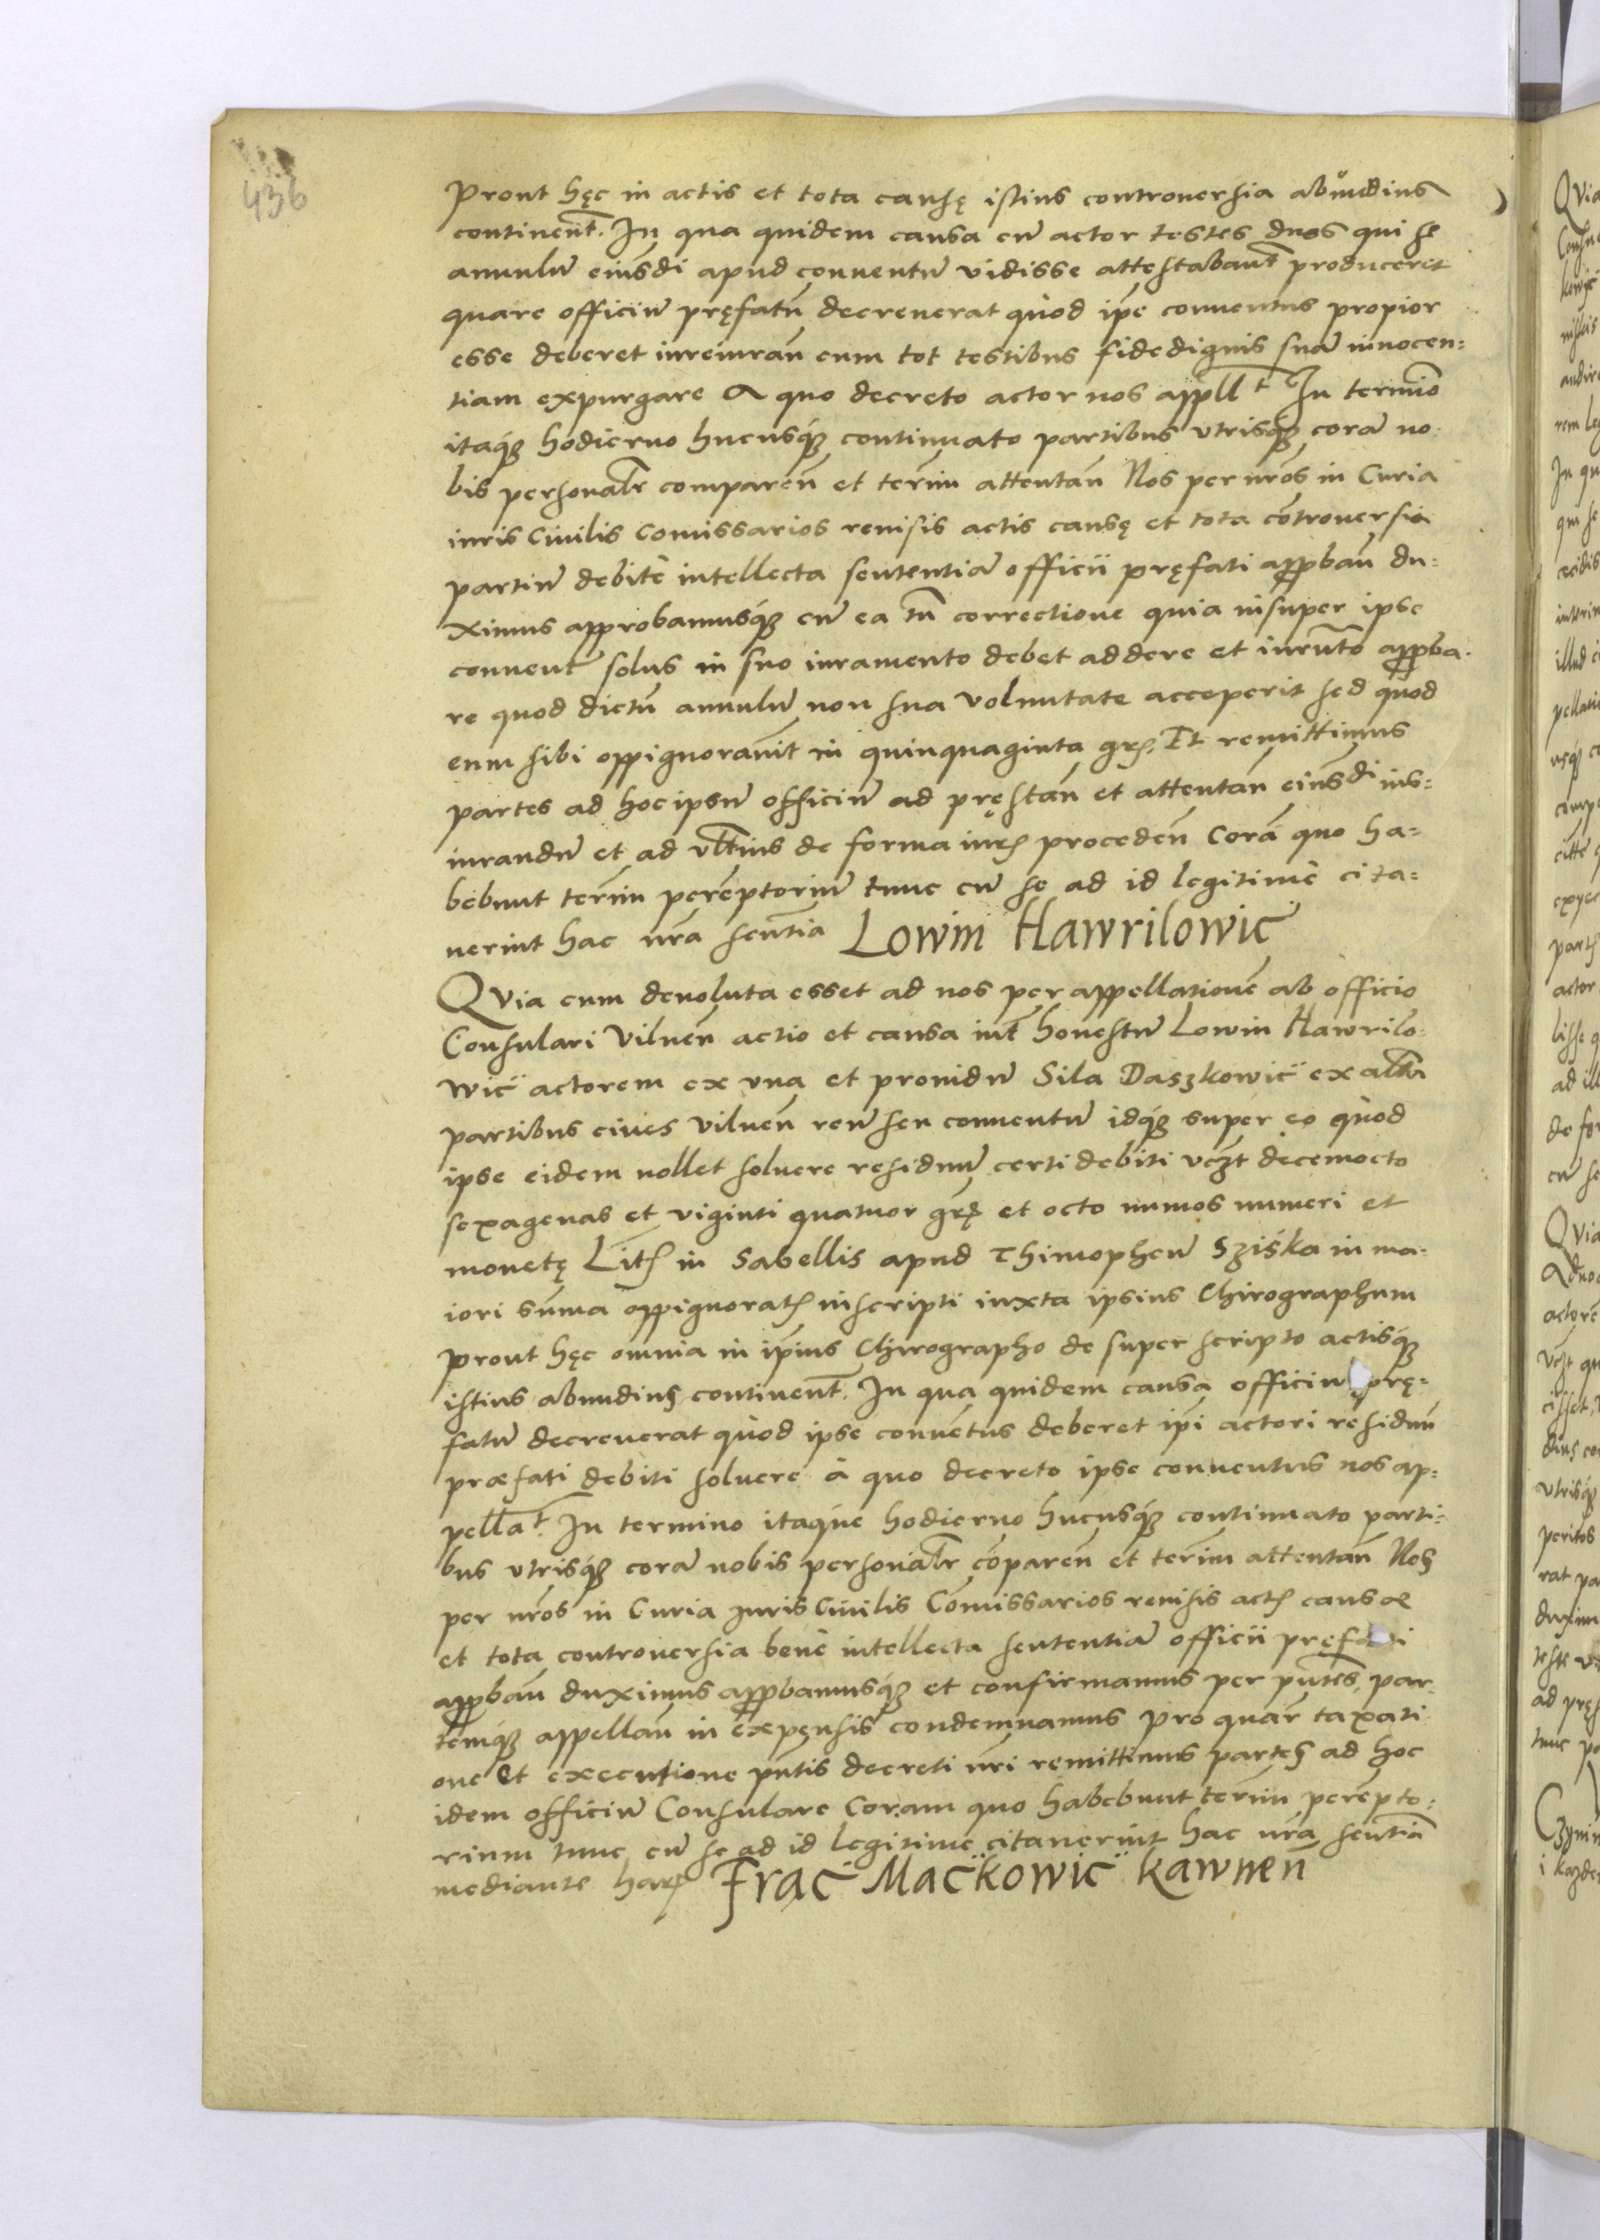 436
Prout hęc in actis et tota causę istius controuersia abundius
continent̃. In qua quidem causa cũ actor testes duos qui se
annulũ eiusdi apud conuentũ vidisse attestabant̃ produceret
quare officiũ pręfatũ decreuerat quòd ip̃e conuentus propior
esse deberet iureiurañ cum tot testibus fidedignis suã innocen=
tiam expurgare A quo decreto actor nos appllt In termĩo
itaq́ꝫ hodierno hucusq́ꝫ continuato partibus vtrisq́ꝫ corã no
bis personalr̃ compareñ et term̃ attentañ Nos per nr̃os in Curia
iuris Ciuilis Comissarios reuisis actis causę et tota cõtrouersia
partiũ debitè intellecta sententiã officii pręfati approbañ du=
ximus approbamusq́ꝫ cũ ea tñ correctione quia insuper ipse
conuent9 solus in suo iuramento debet addere et iurñto approba=
re quod dictũ annulũ non sua voluntate acceperit sed quod
eum sibi oppignorauit in quinquaginta gr̃. Et remittimus
partes ad hoc ipsũ officiũ ad pręstañ et attentañ eiusdi ius=
iurandũ et ad vlt̃ius de forma iur̃ procedeñ Corã quo ha=
bebunt term̃ perẽptoriũ tunc cũ se ad id legitimè cita=
uerint hac nr̃a senñtia Lowin Hawrilowic̈
QVia cum deuoluta esset ad nos per appellationẽ ab officio
Consulari Vilneñ actio et causa int̃ honestũ Lowin Hawrilo
wic̈ actorem ex vna et prouidũ Sila Daszkowic̈ ex alt̃a
partibus ciues Vilneñ reũ seu conuentũ idq́ꝫ super eo quòd
ipse eidem nollet soluere residuũ certi debiti vcꝫt decemocto
sexagenas et viginti quatuor gr̃ę et octo numos numeri et
monetę Lith̃ in Sabellis apud Thimopheũ Sziska in ma=
iori sum̃a oppignorat̃ inscripti iuxta ipsius Chirographum
prout hęc omnia in ip̃ius Chirographo de super scripto actisq́ꝫ
istius abundius continent̃. In qua quidem causa officiũ prę=
fatũ decreuerat quòd ipse conuẽtus deberet ip̃i actori residuũ
praefati debiti soluere à quo decreto ipse conuentus nos ap=
pellat̃. In termino itaque hodierno hucusq́ꝫ continuato parti=
bus vtrisq́ꝫ corã nobis personalr̃ cõpareñ et term̃ attentañ Nos
per nr̃os in Curia Iuris Ciuilis Com̃issarios reuisis act̃ causæ
et tota controuersia benè intellecta sententiã officii pręfati
approbañ duximus approbamusq́ꝫ et confirmamus per pñtes par=
temq́ꝫ appellañ in expensis condemnamus pro quar̃ taxati
one et executione pñtis decreti nr̃i remittimus partes ad hoc
idem officiũ Consulare Coram quo habebunt term̃ perẽpto=
rium tunc cũ se ad id legitimè citauerint hac nr̃a senñtia
mediante har̃ Frac̈ Mac̈kowic̈ Kawneñ